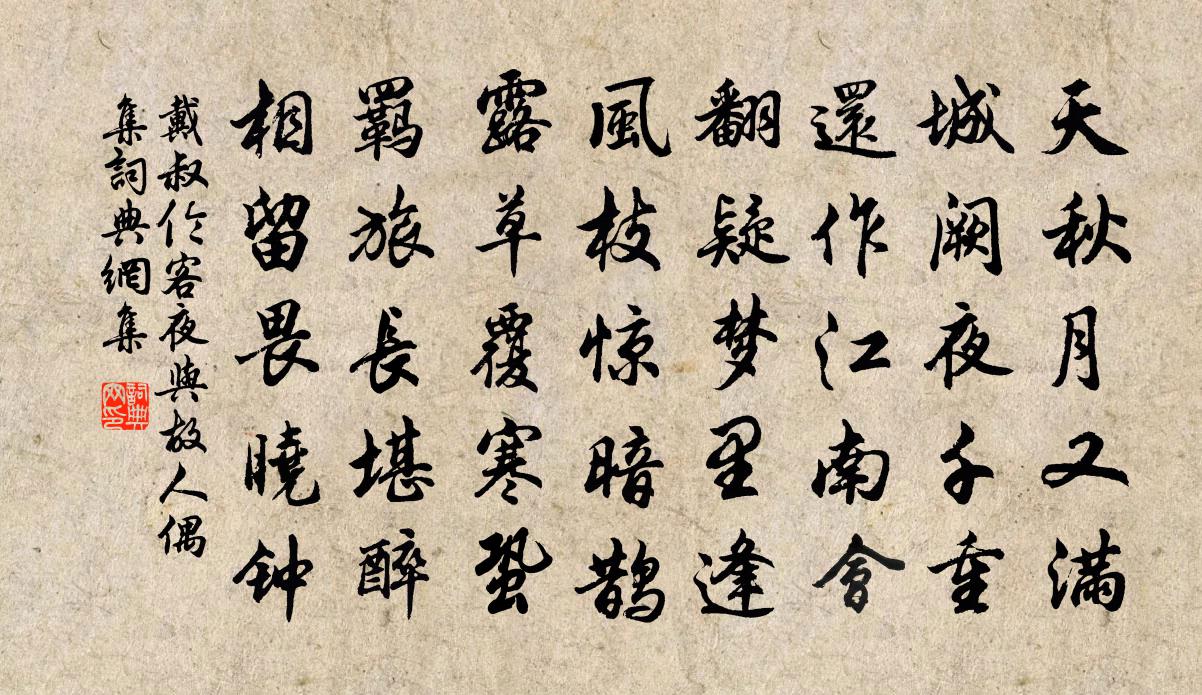 天秋月又满
城阙夜千重
還作江南會
翻疑梦里逢
風枝惊暗鹊
露草覆寒蛩
羈旅長堪醉
相留畏曉钟
戴叔伦客夜與故人偶
集詞典網集
詞典
网印